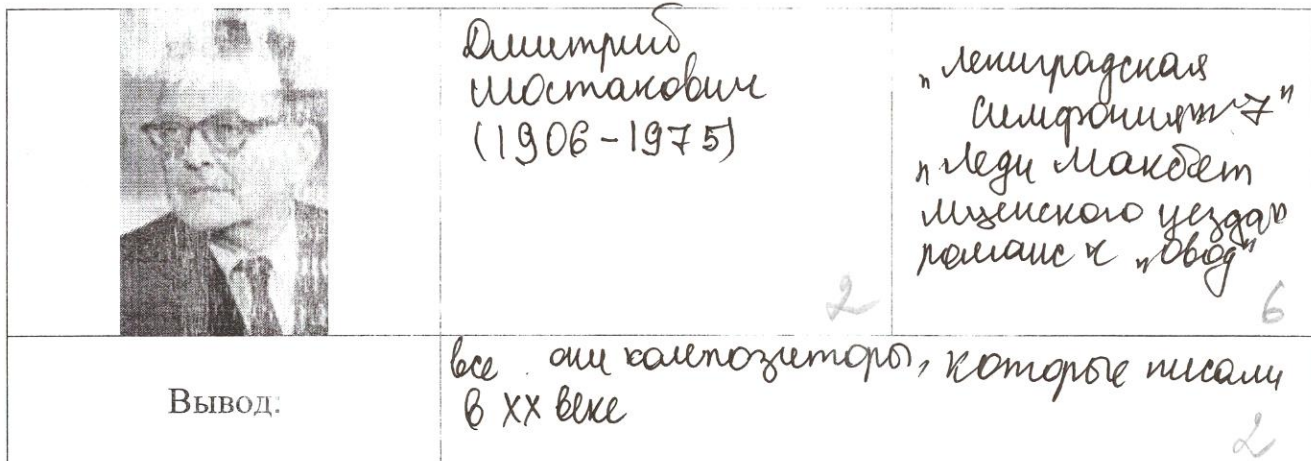 Дмитрий
Шостакович
(1906-1975)
2
„Ленинградская
симфония №7"
„Леди Макбет
Мценского уезда"
романс к „Овод"
6
Вывод:
все они композиторы, которые писали
в XX веке
2